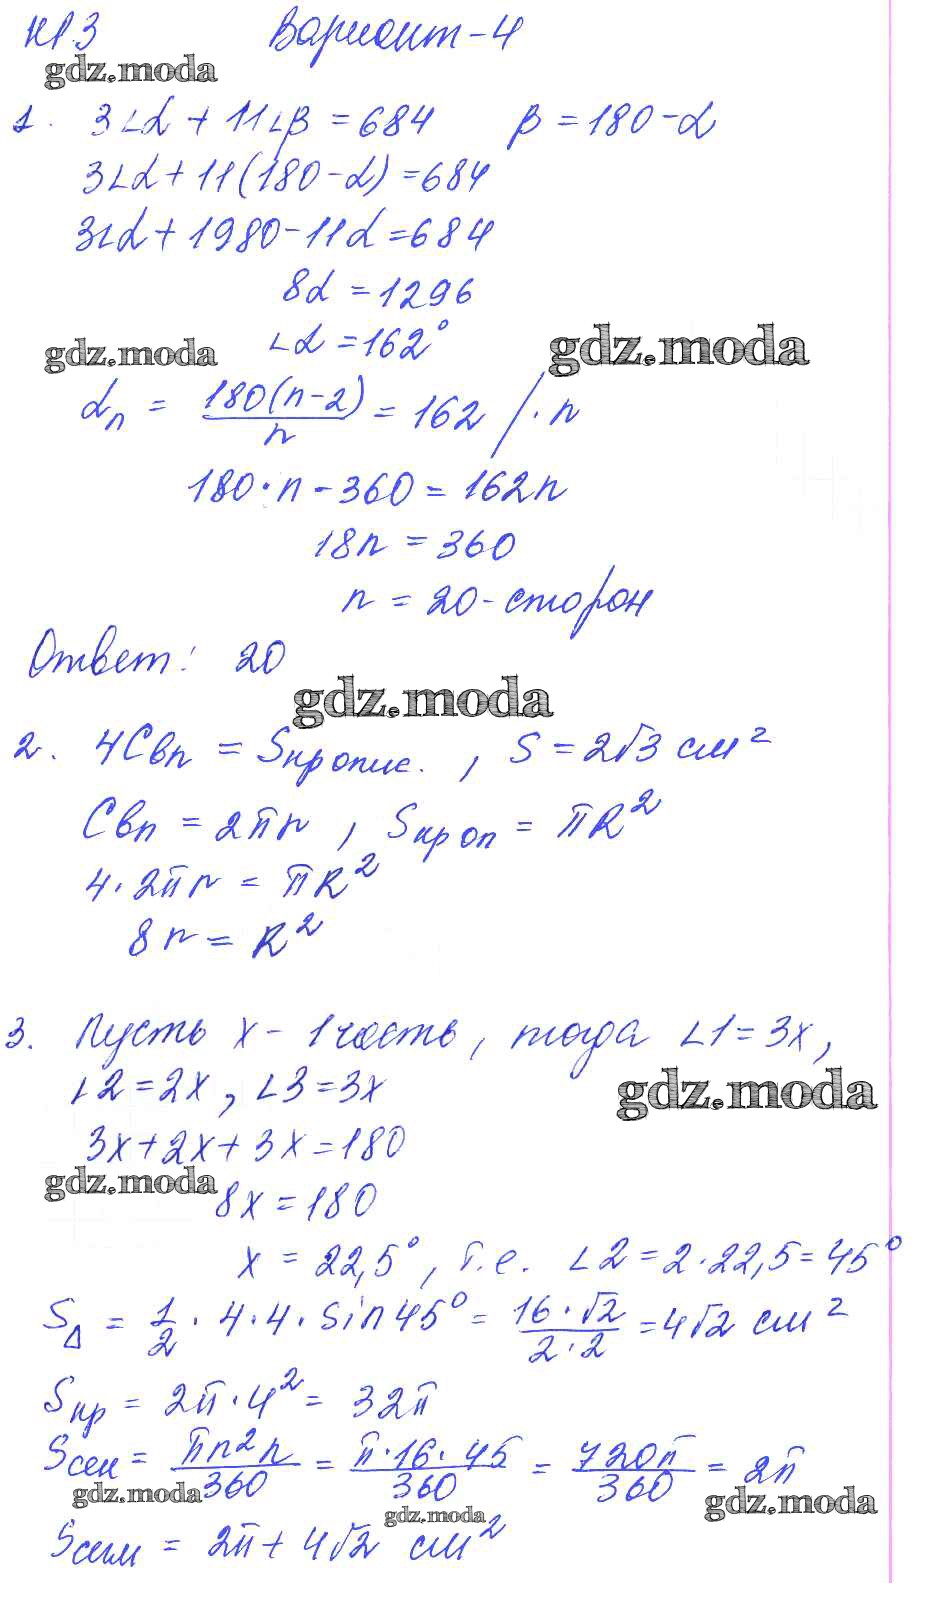 КР.3 Вариант-4
gdz.moda
1. 3∠α + 11∠β = 684 β = 180 - α
3∠α + 11(180 - α) = 684
3∠α + 1980 - 11α = 684
8α = 1296
gdz.moda ∠α = 162° gdz.moda
αn = 180(n-2)/n = 162 / · n
180 · n - 360 = 162n
18n = 360
n = 20 - сторон
Ответ: 20
gdz.moda
2. 4Cвп = Sкропис. , S = 2√3 см²
Cвп = 2πr , Sкроп = πR²
4 · 2πr = πR²
8r = R²
3. Пусть x - 1 часть, тогда ∠1 = 3x,
∠2 = 2x, ∠3 = 3x
gdz.moda
3x + 2x + 3x = 180
gdz.moda 8x = 180
x = 22,5°, т.е. ∠2 = 2 · 22,5 = 45°
S∆ = 1/2 · 4 · 4 · sin 45° = 16 · √2/2 · 2 = 4√2 см²
Sкр = 2π · 4² = 32π
Sсек = πr²n/360 = π · 16 · 45/360 = 720π/360 = 2π
gdz.moda gdz.moda gdz.moda
Sсегм = 2π + 4√2 см²